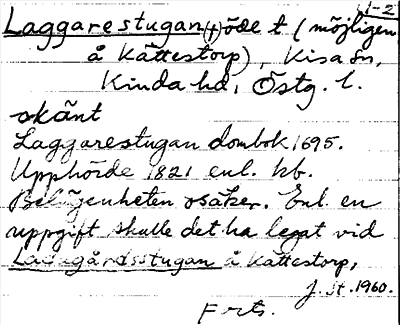 1-2
Laggarestugan (†) öde t (möjligen
å Kättestorp), Kisa sn,
Kinda hd, Östg. l.
skänt
Laggarestugan dombok 1695.
Upphörde 1821 enl. kb.
Belägenheten osäker. Enl. en
uppgift skulle det ha legat vid
Ladugårdsstugan å Kättestorp,
J. St. 1960.
Forts.